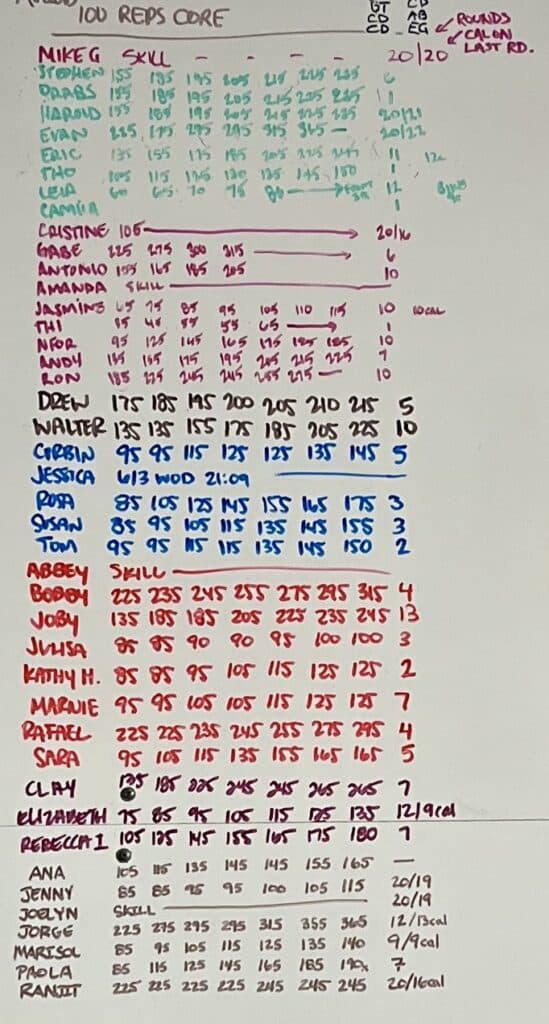 100 REPS CORE
GT CD
CD AB
CD EG
ROUNDS
CAL ON
LAST RD.
MIKE G SKILL - - - - 20/20
STEPHEN 155 185 195 205 215 225 235 6
DRABS 155 185 195 205 215 225 235 11
HAROLD 155 185 195 205 215 225 235 20/21
EVAN 225 275 295 295 315 365 — 20/22
ERIC 135 155 175 185 205 225 245 11
THO 105 115 125 130 135 145 150 1
LEIA 60 65 70 75 80 → 12
CAMILA 1
CRISTINE 105 → 20/16
GABE 225 275 300 315 → 6
ANTONIO 155 165 185 205 10
AMANDA SKILL —
JASMINE 65 75 85 95 105 110 115 10 10CAL
THI 35 45 55 55 65 → 1
NFOR 95 125 145 165 175 185 185 10
ANDY 135 155 175 195 205 215 225 7
RON 185 225 245 245 255 275 — 10
DREW 175 185 195 200 205 210 215 5
WALTER 135 135 155 175 185 205 225 10
CORBIN 95 95 115 125 125 135 145 5
JESSICA 6/3 WOD 21:09 —
ROSA 85 105 125 145 155 165 175 3
SUSAN 85 95 105 115 135 145 155 3
TOM 95 95 115 115 135 145 150 2
ABBEY SKILL —
BOBBY 225 235 245 255 275 295 315 4
JOBY 135 185 185 205 225 235 245 13
JULISA 85 85 90 90 95 100 100 3
KATHY H. 85 85 95 105 115 125 125 2
MARNIE 95 95 105 105 115 125 125 7
RAFAEL 225 225 235 245 255 275 295 4
SARA 95 105 115 135 155 165 165 5
CLAY 135 185 225 245 245 265 265 7
ELIZABETH 75 85 95 105 115 125 135 12/9cal
REBECCA I 105 125 145 155 165 175 180 7
ANA 105 115 135 145 145 155 165 —
JENNY 85 85 95 95 100 105 115 20/19
JOELYN SKILL — 20/19
JORGE 225 275 295 295 315 355 365 12/13cal
MARISOL 85 95 105 115 125 135 140 9/9cal
PAOLA 85 115 125 145 165 185 190x 7
RANJIT 225 225 225 225 245 245 245 20/16cal